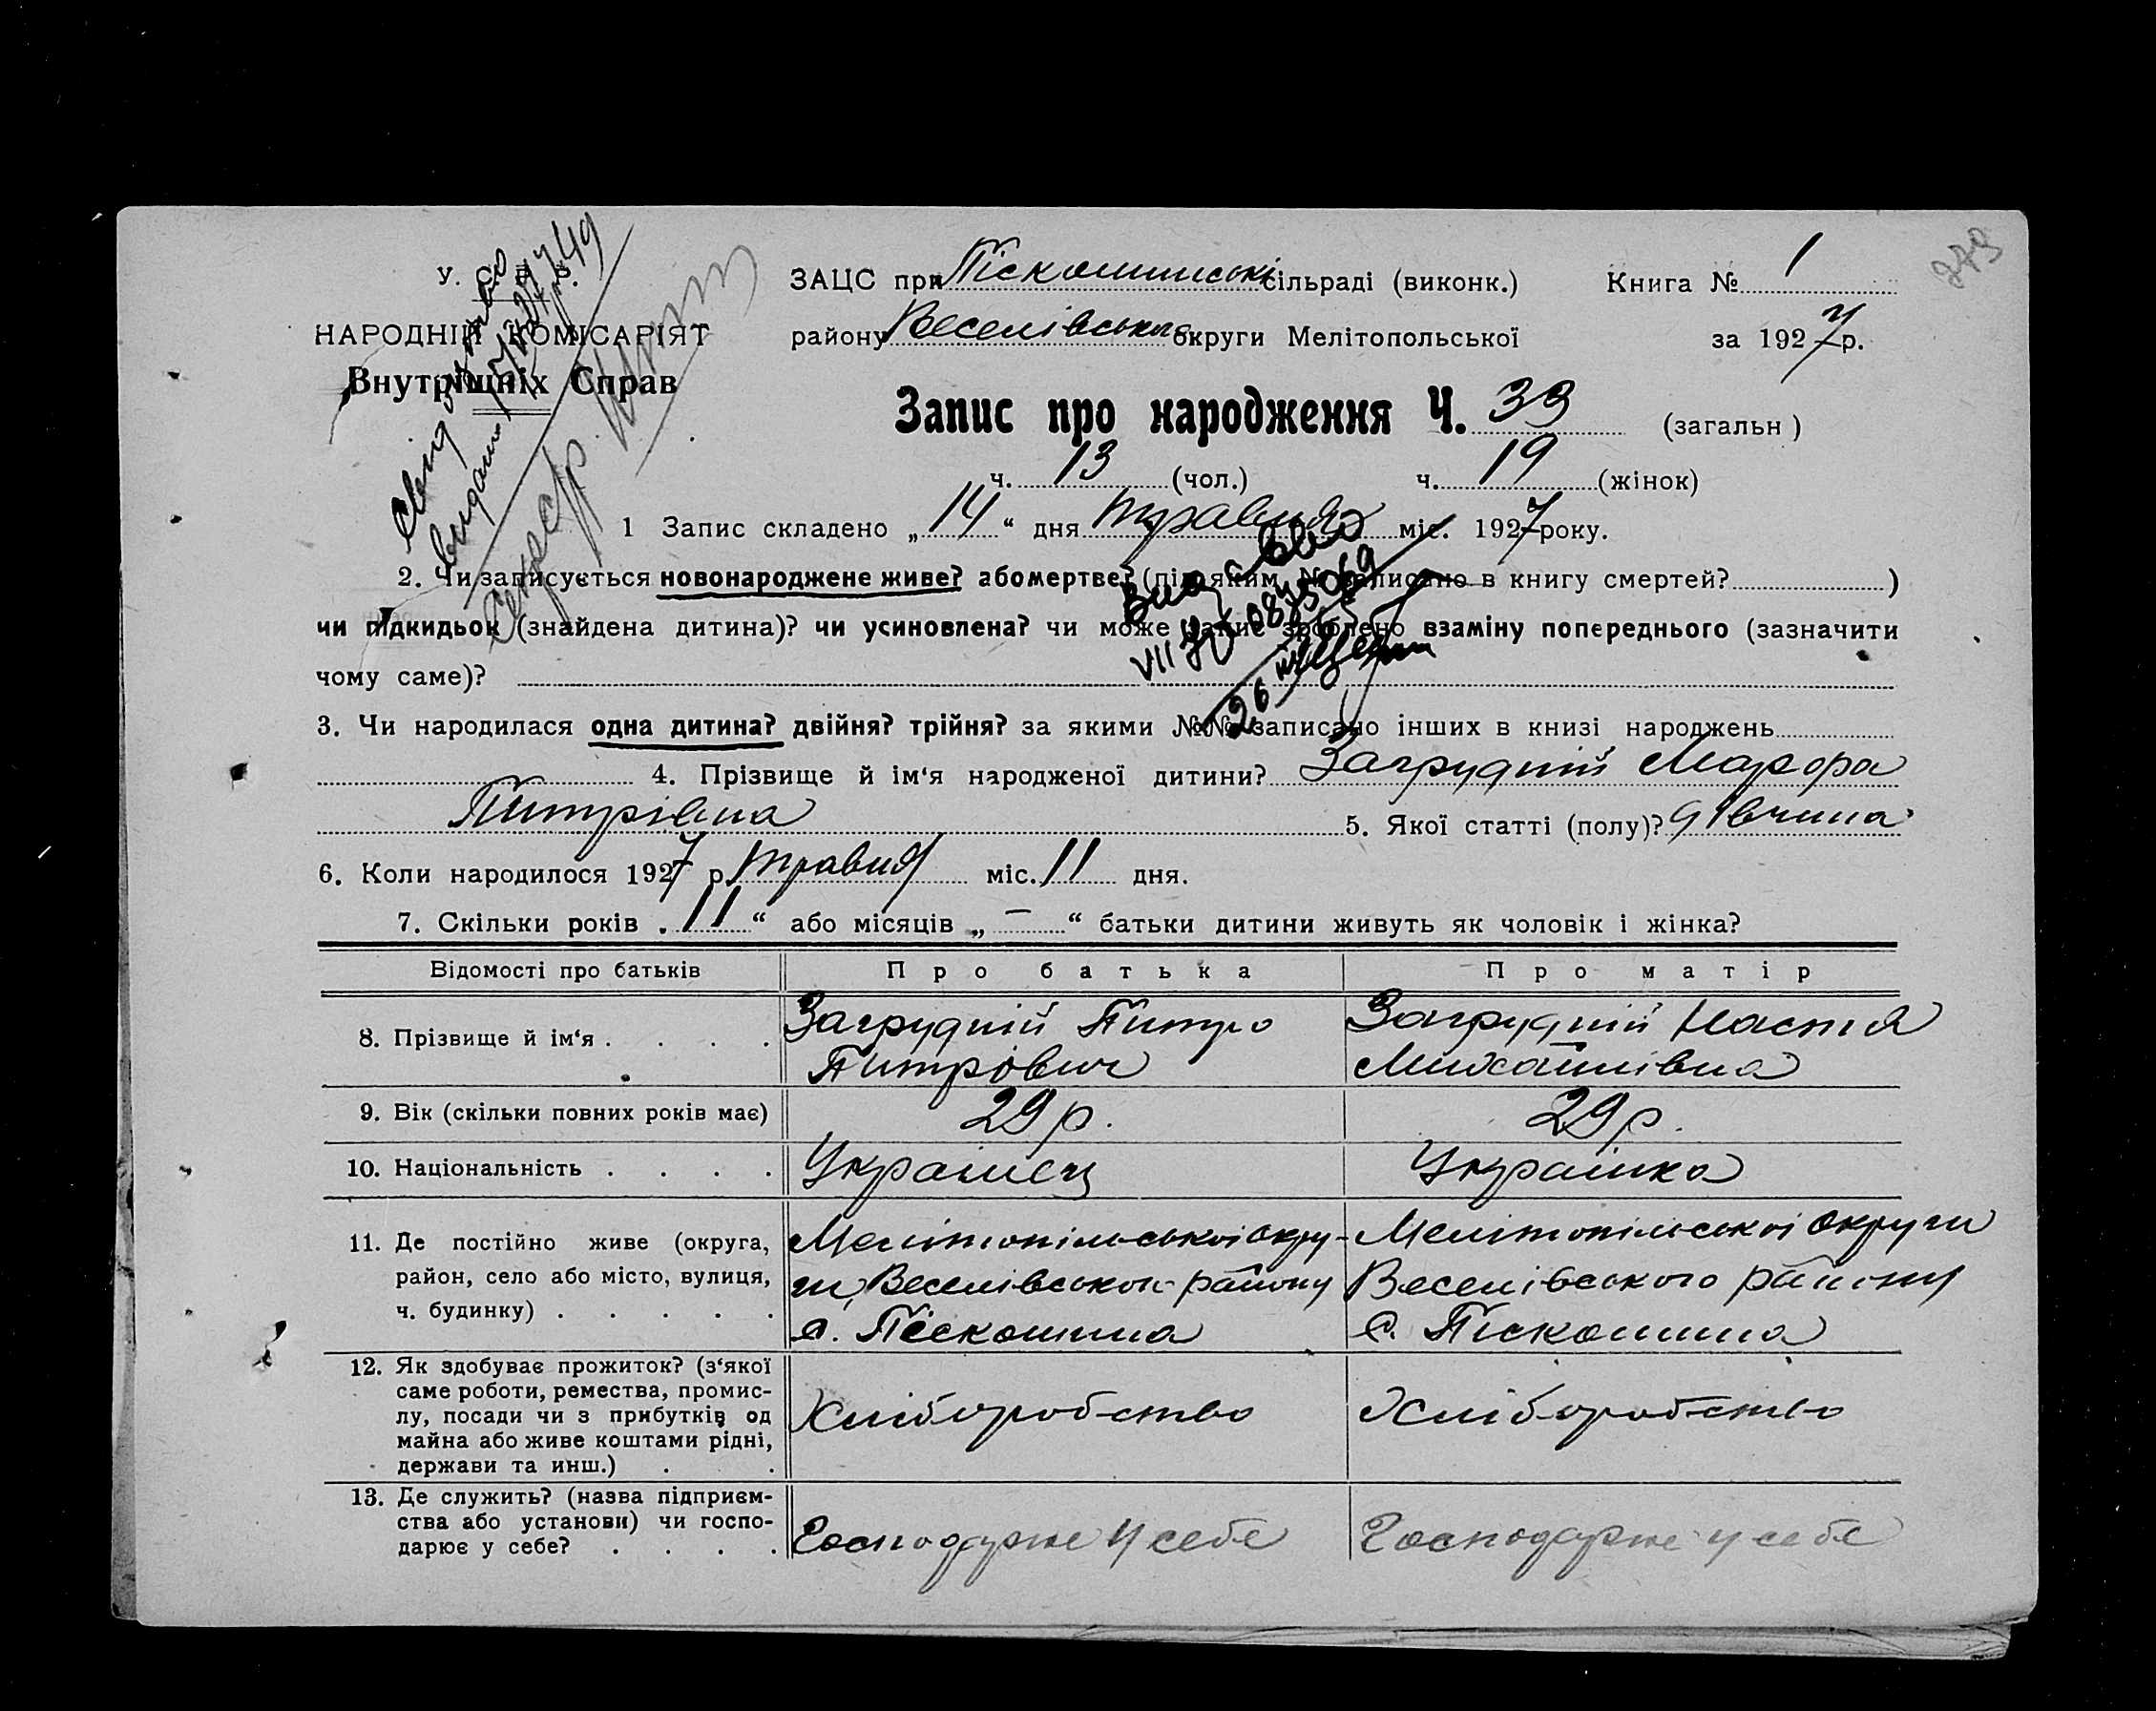 У. С. Р. Р.
НАРОДНІЙ КОМІСАРІЯТ
Внутрішніх Справ
ЗАЦС при Піскошинські сільраді (виконк.) Книга № 1
району Веселівського округи Мелітопольської за 1927 р.
Запис про народження Ч. 33 (загальн)
ч. 13 (чол.) ч. 19 (жінок)
1 Запис складено „14“ дня травня міс. 1927 року.
2. Чи записується новонароджене живе? або мертве? (під яким № записано в книгу смертей? )
чи підкидьок (знайдена дитина)? чи усиновлена? чи може запис зроблено взаміну попереднього (зазначити
чому саме)?
3. Чи народилася одна дитина? двійня? трійня? за якими №№ записано інших в книзі народжень
4. Прізвище й ім‘я народженої дитини? Загрудній
Питрівна 5. Якої статті (полу)? дівчина
6. Коли народилося 1927 р. травня міс. 11 дня.
7. Скільки років „11“ або місяців „—“ батьки дитини живуть як чоловік і жінка?
Відомості про батьків Про батька Про матір
8. Прізвище й ім‘я . . . . Загрудній Питро Загрудній Настя
Питрович Михайлівна
9. Вік (скільки повних років має) 29 р. 29 р.
10. Національність . . . . Українец Українка
11. Де постійно живе (округа, Мелітопільської окру- Мелітопільскої округи
район, село або місто, вулиця, ги, Веселівського району Веселівського району
ч. будинку) . . . . . с. Піскошина с. Піскошина
12. Як здобуває прожиток? (з‘якої
саме роботи, ремества, промис-
лу, посади чи з прибутків од Хліборобство Хліборобство
майна або живе коштами рідні,
держави та инш.) . .
13. Де служить? (назва підприєм-
ства або установи) чи госпо- Господарює у себе Господарює у себе
дарює у себе? . . . .